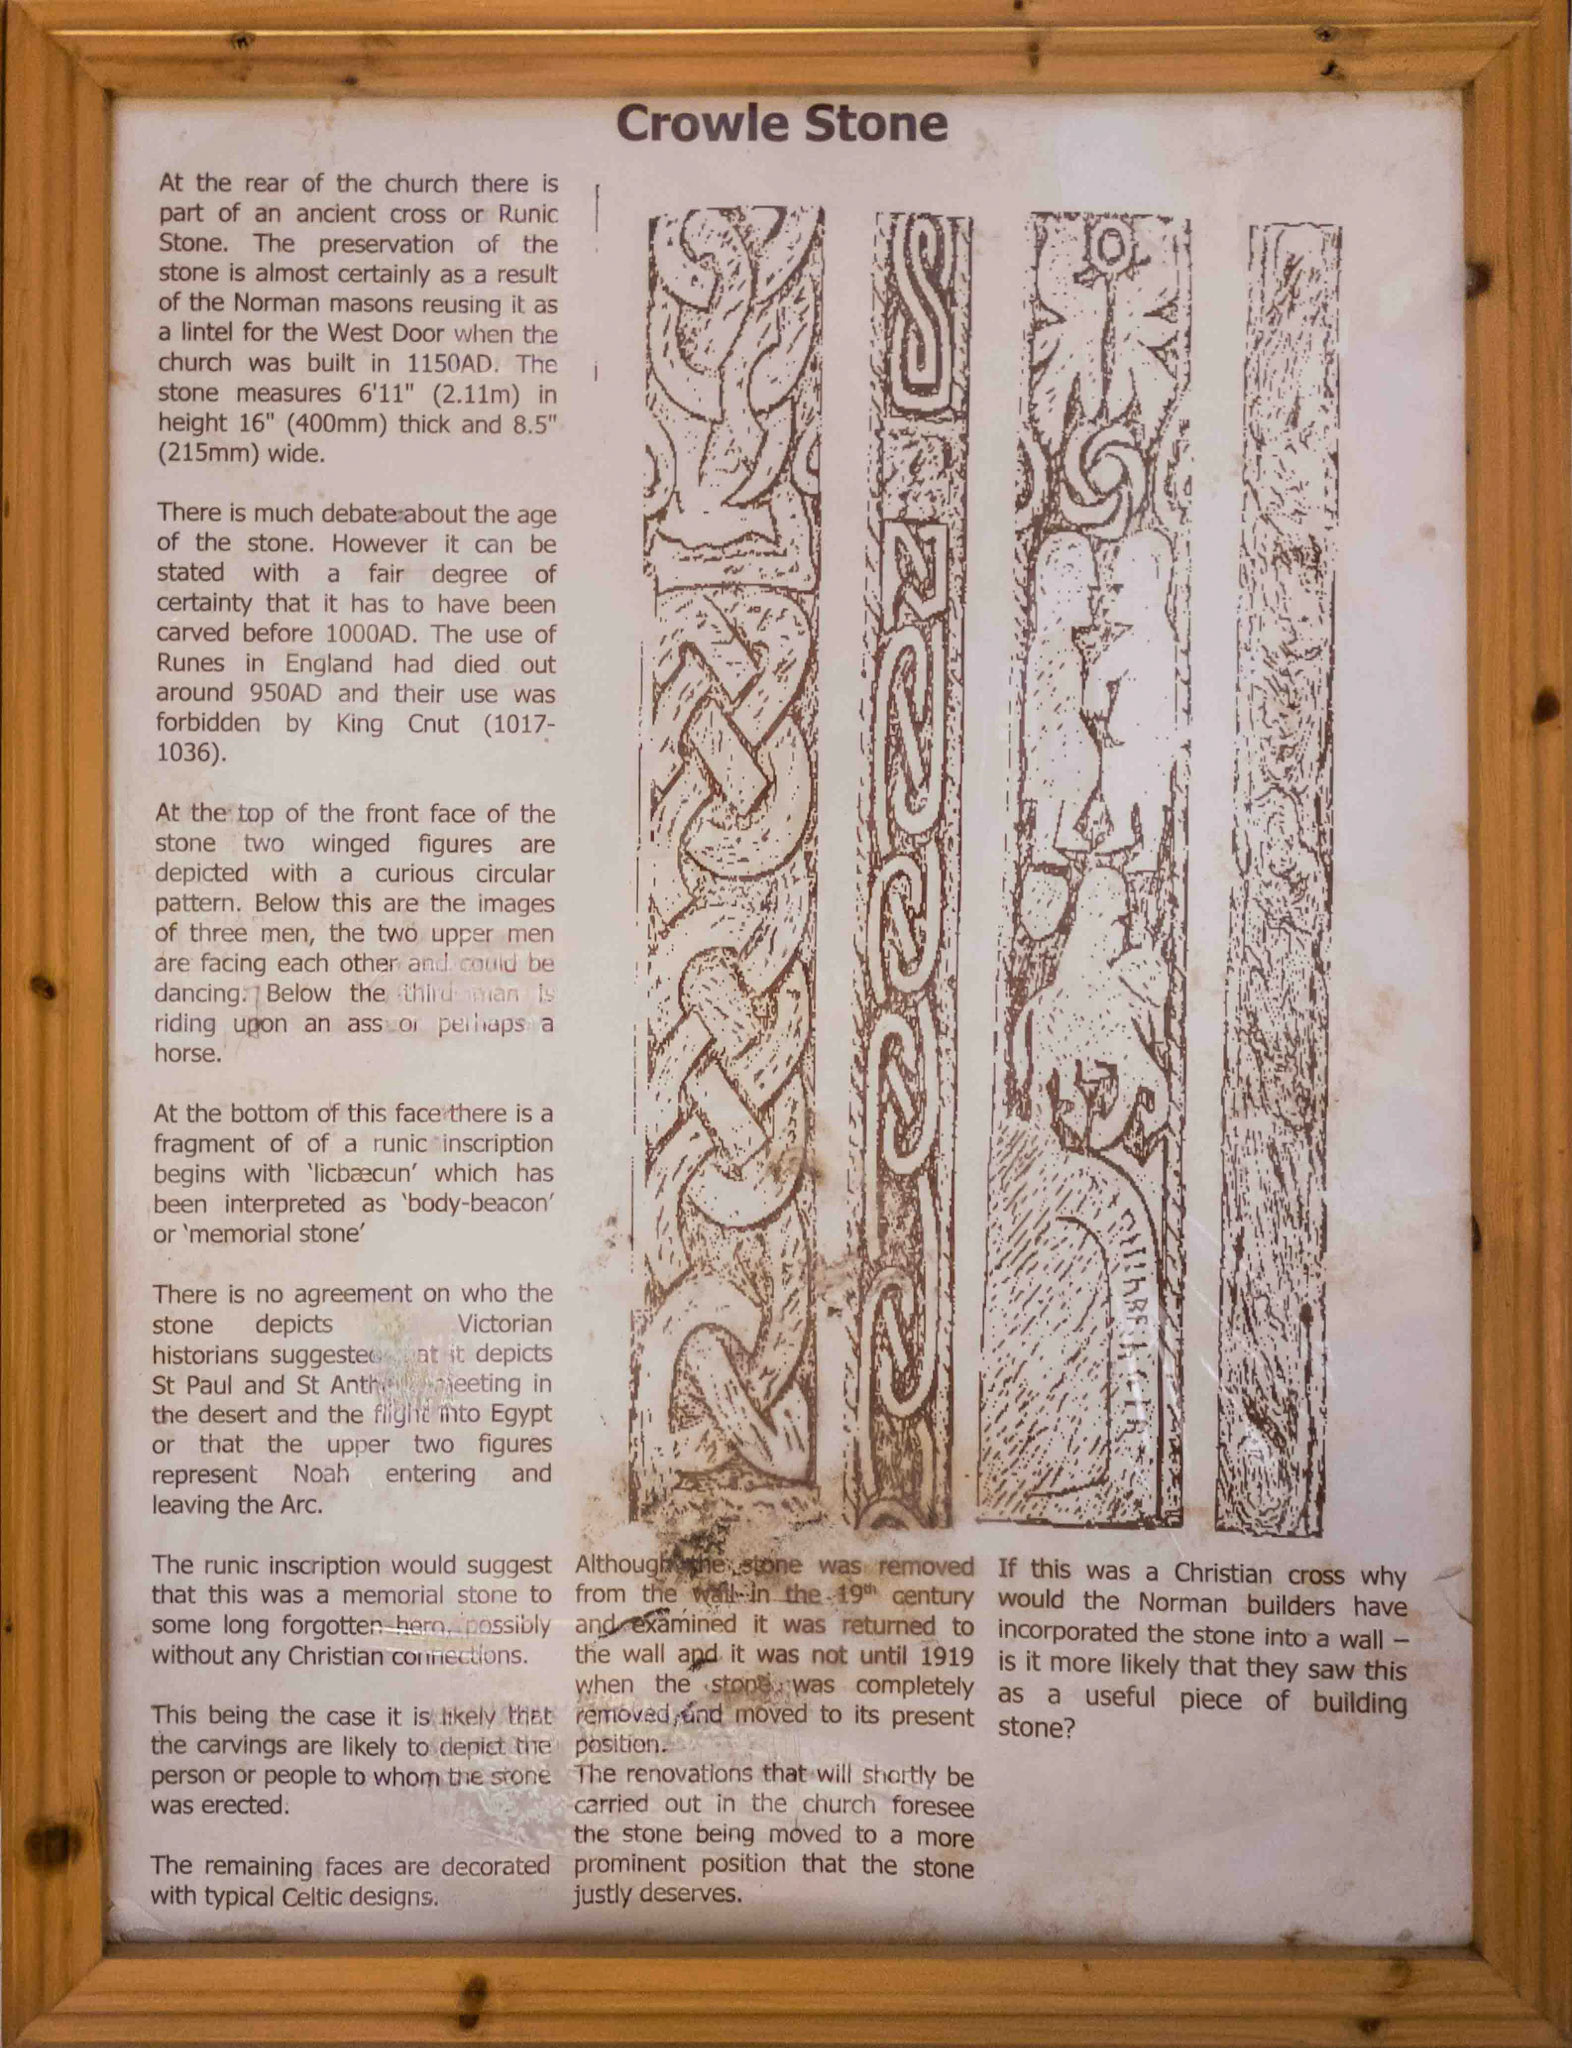 Crowle Stone
At the rear of the church there is
part of an ancient cross or Runic
Stone. The preservation of the
stone is almost certainly as a result
of the Norman masons reusing it as
a lintel for the West Door when the
church was built in 1150AD. The
stone measures 6'11" (2.11m) in
height 16" (400mm) thick and 8.5"
(215mm) wide.
There is much debate about the age
of the stone. However it can be
stated with a fair degree of
certainty that it has to have been
carved before 1000AD. The use of
Runes in England had died out
around 950AD and their use was
forbidden by King Cnut (1017-
1036).
At the top of the front face of the
stone two winged figures are
depicted with a curious circular
pattern. Below this are the images
of three men, the two upper men
are facing each other and could be
dancing. Below the third man is
riding upon an ass or perhaps a
horse.
At the bottom of this face there is a
fragment of of a runic inscription
begins with ‘licbæcun’ which has
been interpreted as ‘body-beacon’
or ‘memorial stone’
There is no agreement on who the
stone depicts Victorian
historians suggested it depicts
St Paul and St meeting in
the desert and the flight into Egypt
or that the upper two figures
represent Noah entering and
leaving the Arc.
The runic inscription would suggest
that this was a memorial stone to
some long forgotten hero, possibly
without any Christian connections.
This being the case it is likely that
the carvings are likely to depict the
person or people to whom the stone
was erected.
The remaining faces are decorated
with typical Celtic designs.
Although the stone was removed
from the wall in the 19th century
and examined it was returned to
the wall and it was not until 1919
when the stone was completely
removed and moved to its present
position.
The renovations that will shortly be
carried out in the church foresee
the stone being moved to a more
prominent position that the stone
justly deserves.
If this was a Christian cross why
would the Norman builders have
incorporated the stone into a wall –
is it more likely that they saw this
as a useful piece of building
stone?